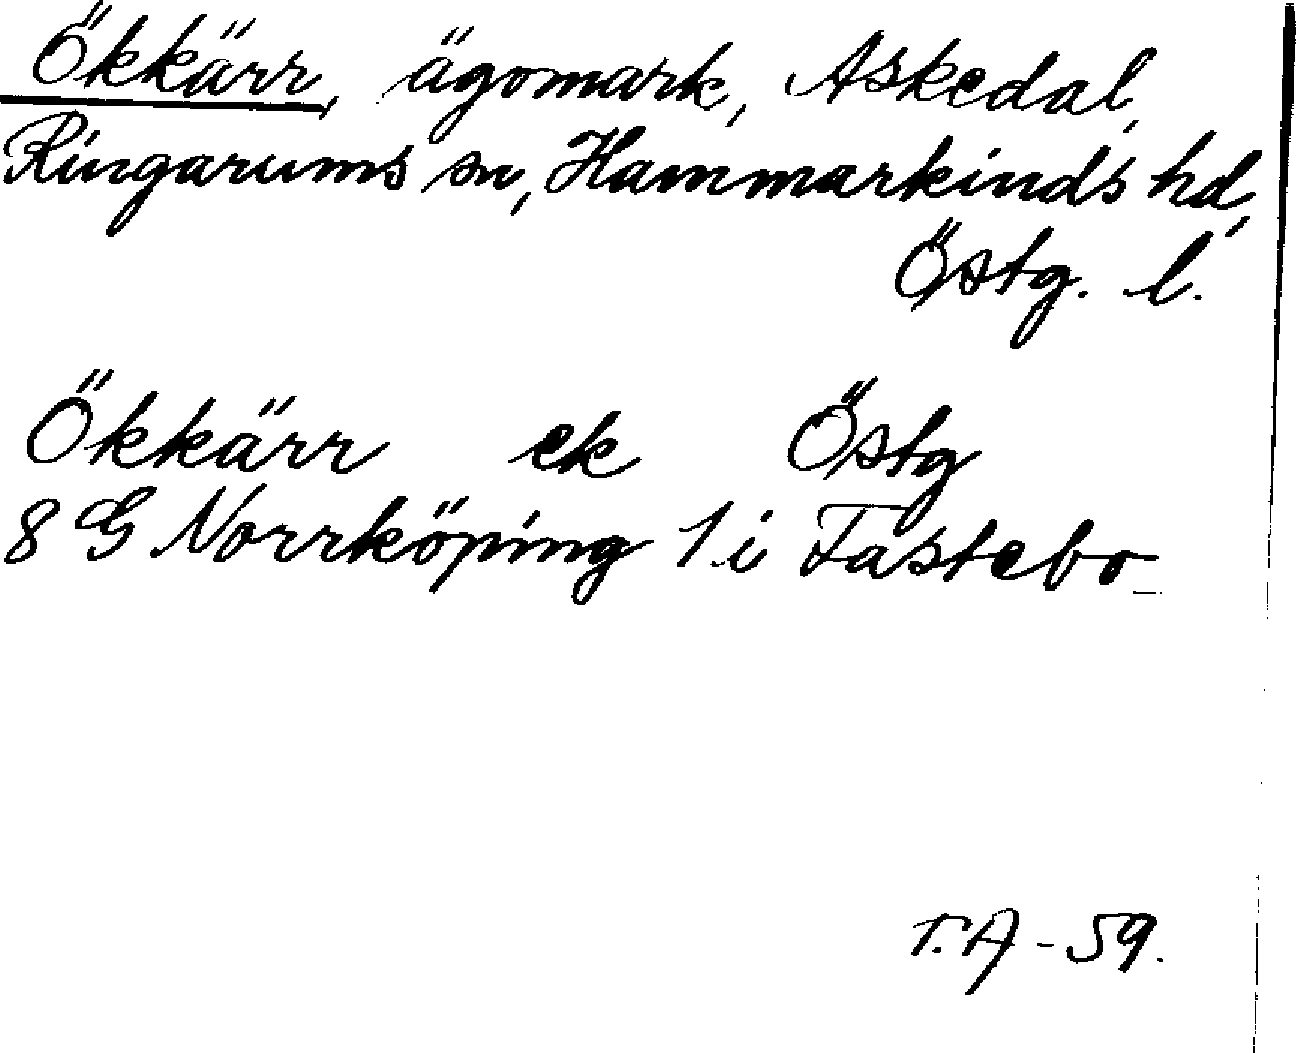 Ökkärr, ägomark, Askedal,
Ringarums sn, Hammarkinds hd,
Östg. l.
Ökkärr ek Östg
8 G Norrköping 1 i Fastebo
T.A - 59.